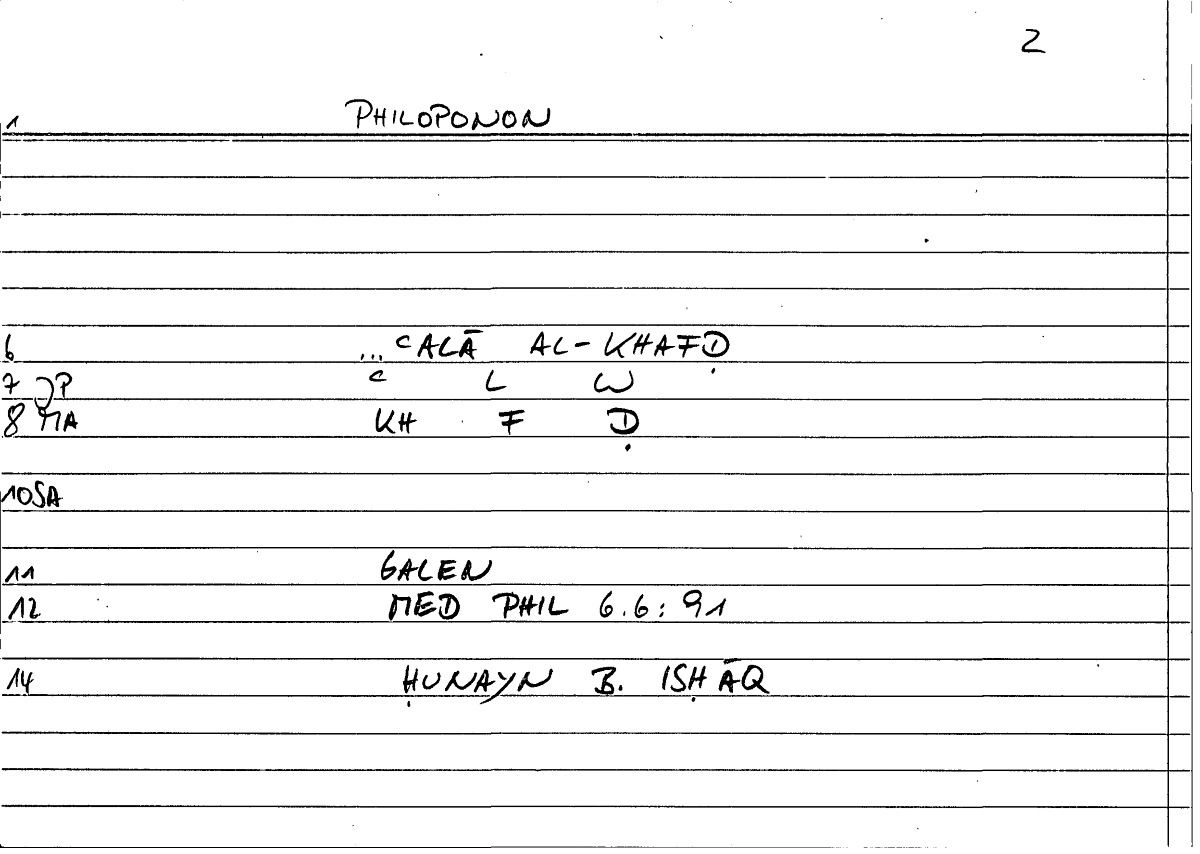 2
1 PHILOPONON
6 ... ʿALĀ AL-KHAFḌ
7 JP ʿ L W
8 MA KH F Ḍ
10 SA
11 GALEN
12 MED PHIL 6.6:91
14 ḤUNAYN B. ISḤĀQ